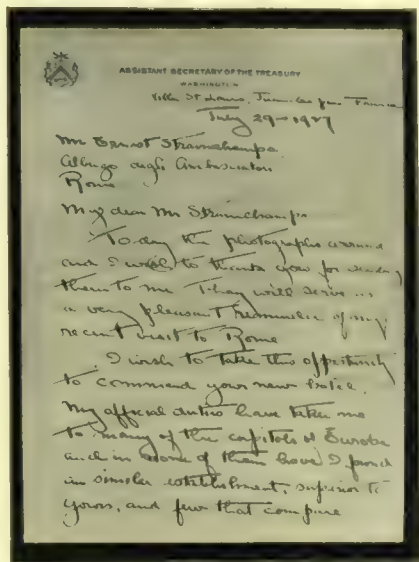 ASSISTANT SECRETARY OF THE TREASURY
WASHINGTON
Villa St Louis, Juan les pins France
July 29 - 1927
Mr Ernest Strainchamps
Albergo degli Ambasciatori
Rome
My dear Mr Strainchamps
To day the photographs arrived
and I wish to thank you for sending
them to me They will serve as
a very pleasant reminder of my
recent visit to Rome
I wish to take this opportunity
to commend your new hotel.
My official duties have taken me
to many of the capitols of Europe
and in none of them have I found
similar establishment, superior to
yours, and few that compare